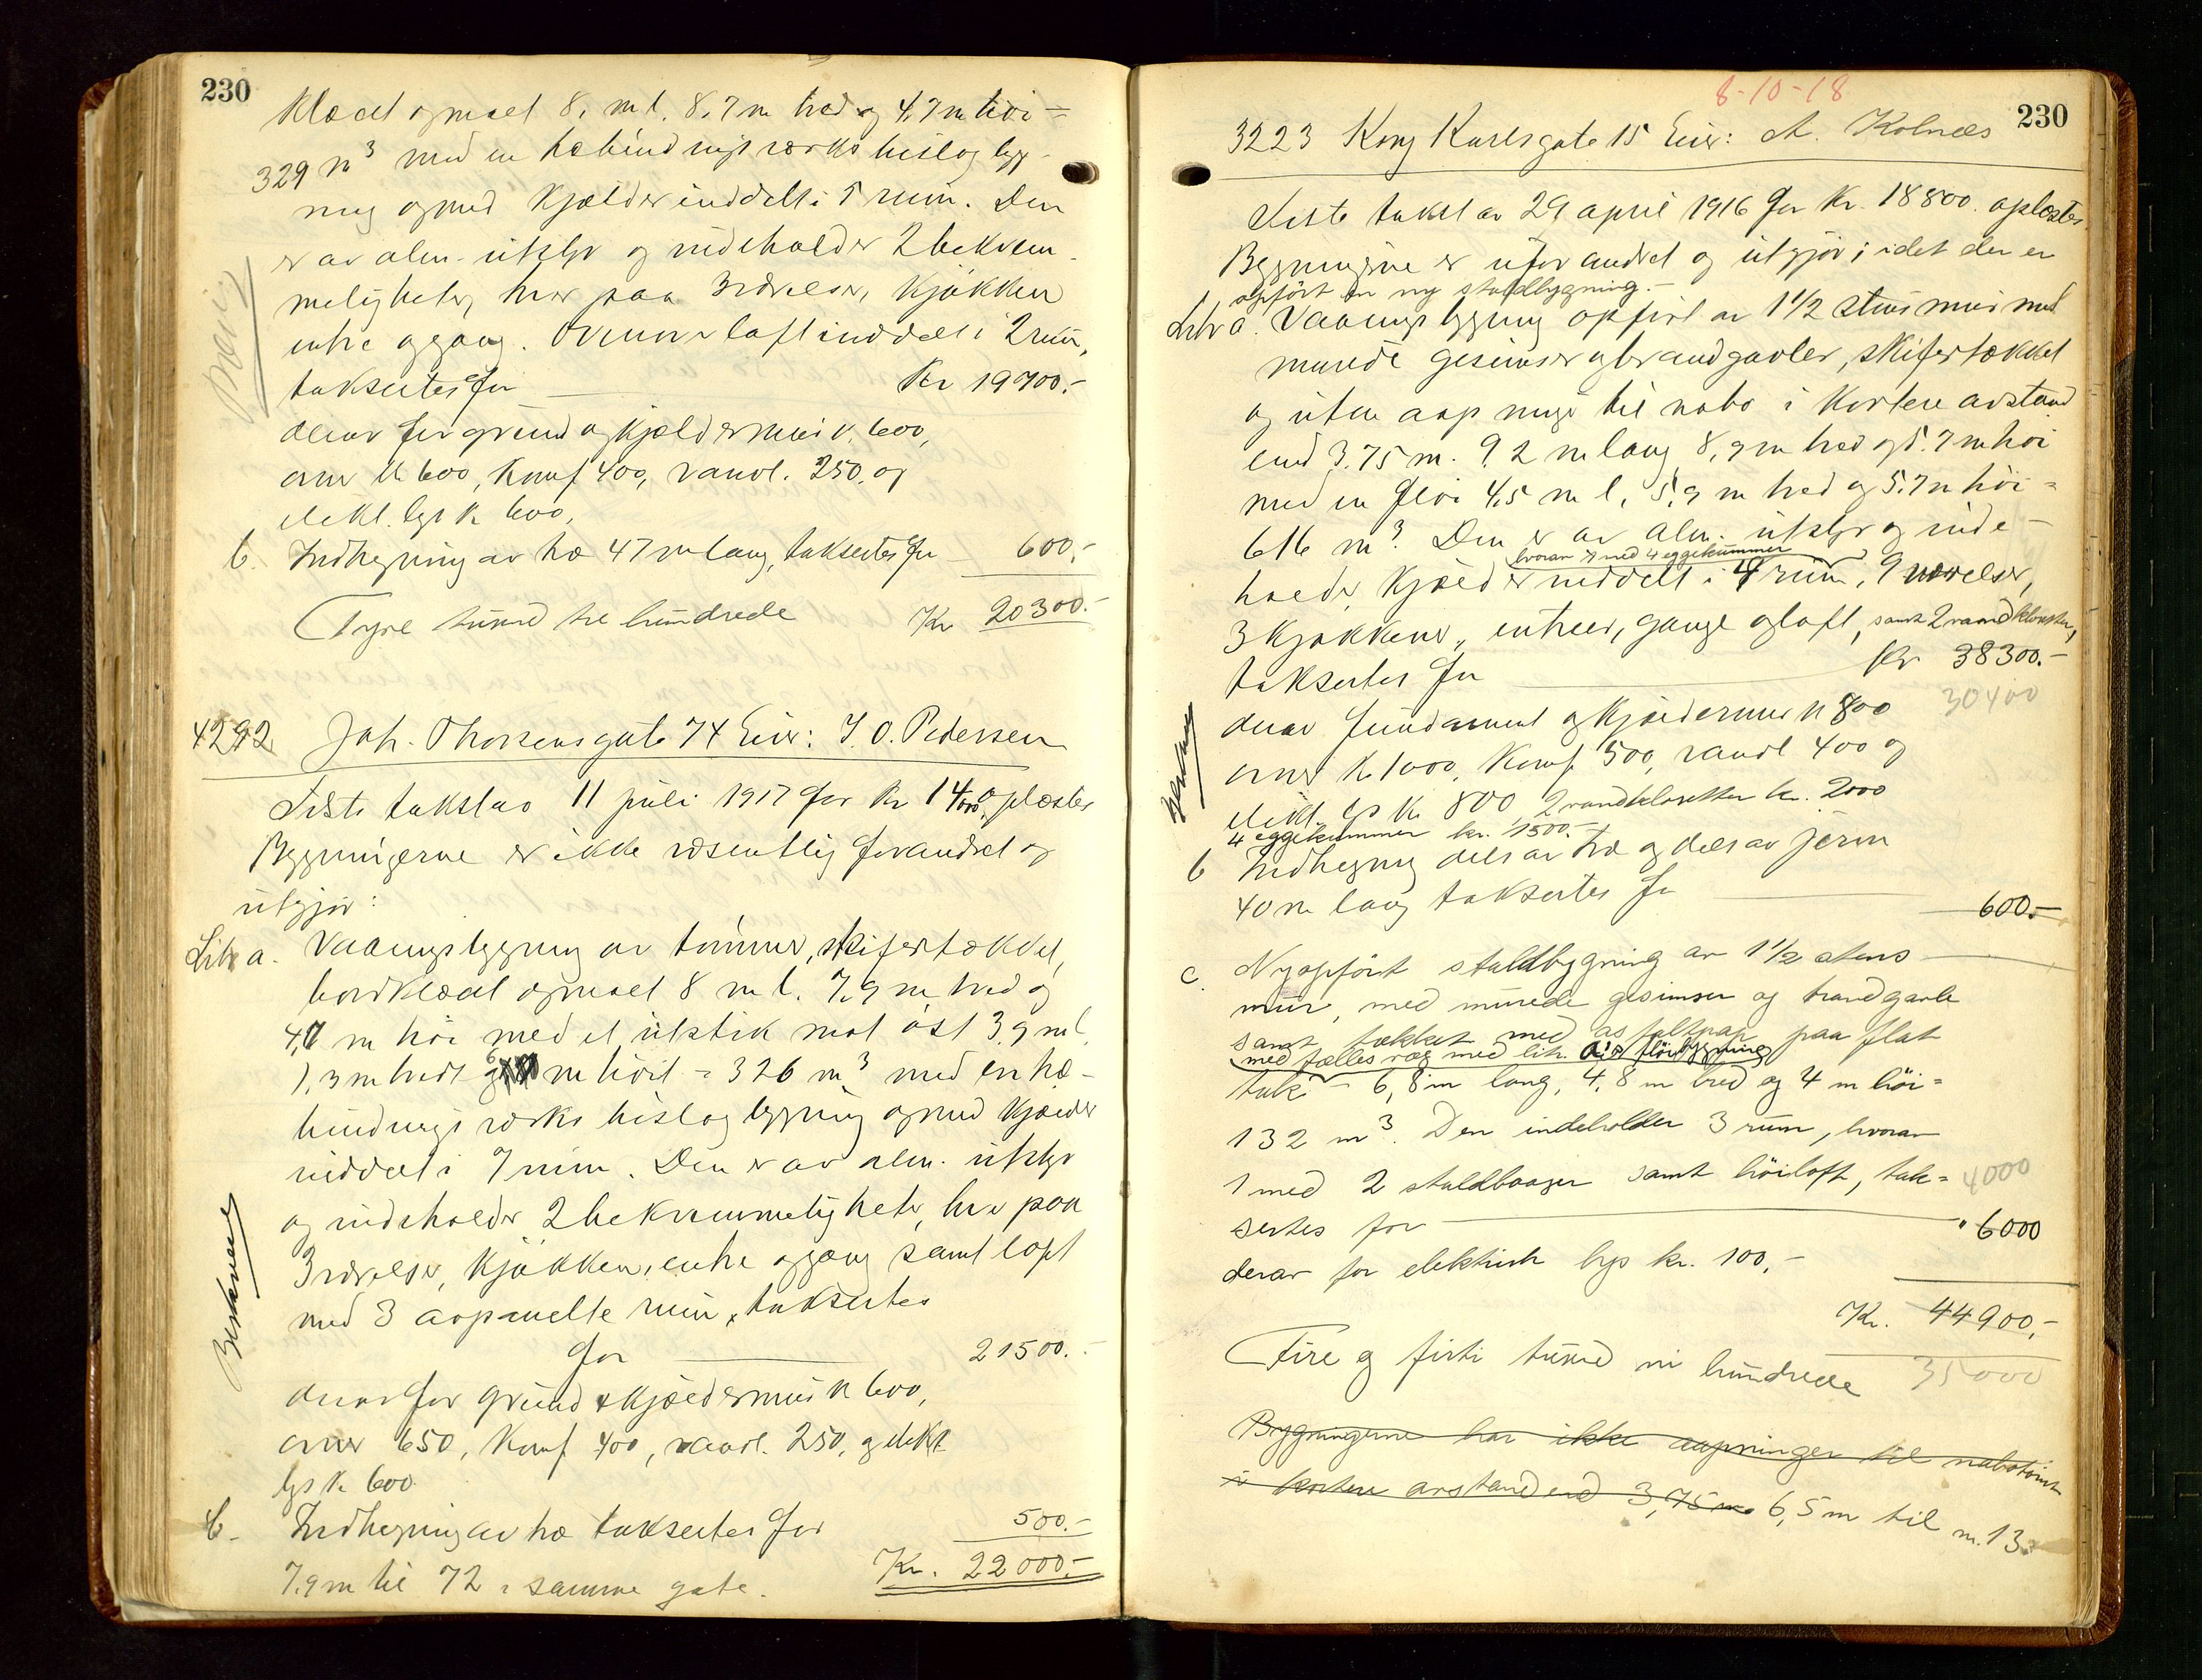 230
klædt opmaalt 8, m l. 8,7 m bred og 4,7 m høi =
329 m³ med en træbindingsværks bislagbyg-
ning og med kjælder inddelt i 5 rum. Den
er av alm. utstyr og indeholder 2 bekvem-
meligheter, hver paa 3 værelser, kjøkken
entre og gang. Ovenover loft inddelt i 2 rum,
taksertes for Kr 19700.-
derav for grund og kjældermur k. 600,
ovner k 600, Komf 400, vandl. 250, og
elekt. lys k 600,
b. Indhegning av træ 47 m lang, taksertes for 600,-
Tyve tusind tre hundrede Kr 20300.-
4292 Joh. Thorsensgate 74 Eier: J. O. Pedersen
Siste takst av 11 juli 1917 for Kr 14000, oplæstes
Bygningerne er ikke væsentlig forandret og
utgjør:
Litr a. Vaaningsbygning av tømmer, skifertækket,
bordklædt opmaalt 8 m l. 7,9 m bred og
4,7 m høi med et utstik mot øst 3,9 m l
1,3 m bredt 6 m høit = 326 m³ med en træ-
bindings værks bislagbygning og med kjælder
inddelt i 7 rum. Den er av alm. utstyr
og indeholder 2 bekvemmeligheter, hver paa
3 værelser, kjøkken, entre og gang samt loft
med 3 avpanelte rum, taksertes
for 21500.-
derav for grund & kjældermur k 600,
ovner 650, Komf 400, vandl. 250, og elekt
lys k 600
b. Indhegning av træ taksertes for 500.-
7.9 m til 72 i samme gate. Kr. 22000.-
8-10-18
230
3223 Kong Karlsgate 15 Eier: A. Kolnæs
Siste takst av 29 april 1916 for Kr. 18800. oplæstes.
Bygningerne er uforandret og utgjør; idet der er
opført en ny staldbygning.-
Litr a. Vaaningsbygning opført av 1 1/2 stens mur med
murede gesimser og brandgavler, skifertækket
og uten aapninger til nabo i kortere avstand
end 3.75 m. 9,2 m lang 8,9 m bred og 5.7 m høi
med en fløi 4,5 m l, 5,9 m bred og 5.7 m høi =
616 m³. Den er av alm. utstyr og inde-
hvorav med 4 eggekummer
holder kjælder inddelt i 4 rum, 9 værelser,
3 kjøkkener, entreer, gange og loft, samt 2 vandklosetter,
taksertes for Kr 38300.-
30400
derav fundament og kjældermur k 800
ovner k 1000, Komf 500, vandl 400 og
elekt. lys k 800, 2 vandklosetter kr. 2000
4 eggekummer kr. 1500.-
b Indhegning dels av træ og dels av jern
40 m lang taksertes for 600.-
c. Nyopført staldbygning av 1 1/2 stens
mur, med murede gesimser og brandgavle
samt tækket med asfaltpap paa flat
med fælles væg med litr. a's fløibygning
tak - 6,8 m lang, 4,8 m bred og 4 m høi =
132 m³. Den indeholder 3 rum, hvorav
1 med 2 staldbaaser samt høiloft, tak= 4000
sertes for " 6000
derav for elektrisk lys kr. 100,-
Kr. 44900,-
Fire og firti tusind ni hundrede 35000
Bygningerne har ikke aapninger til nabotomt
i kortere avstand end 3,75 m 6,5 m til nr. 13.